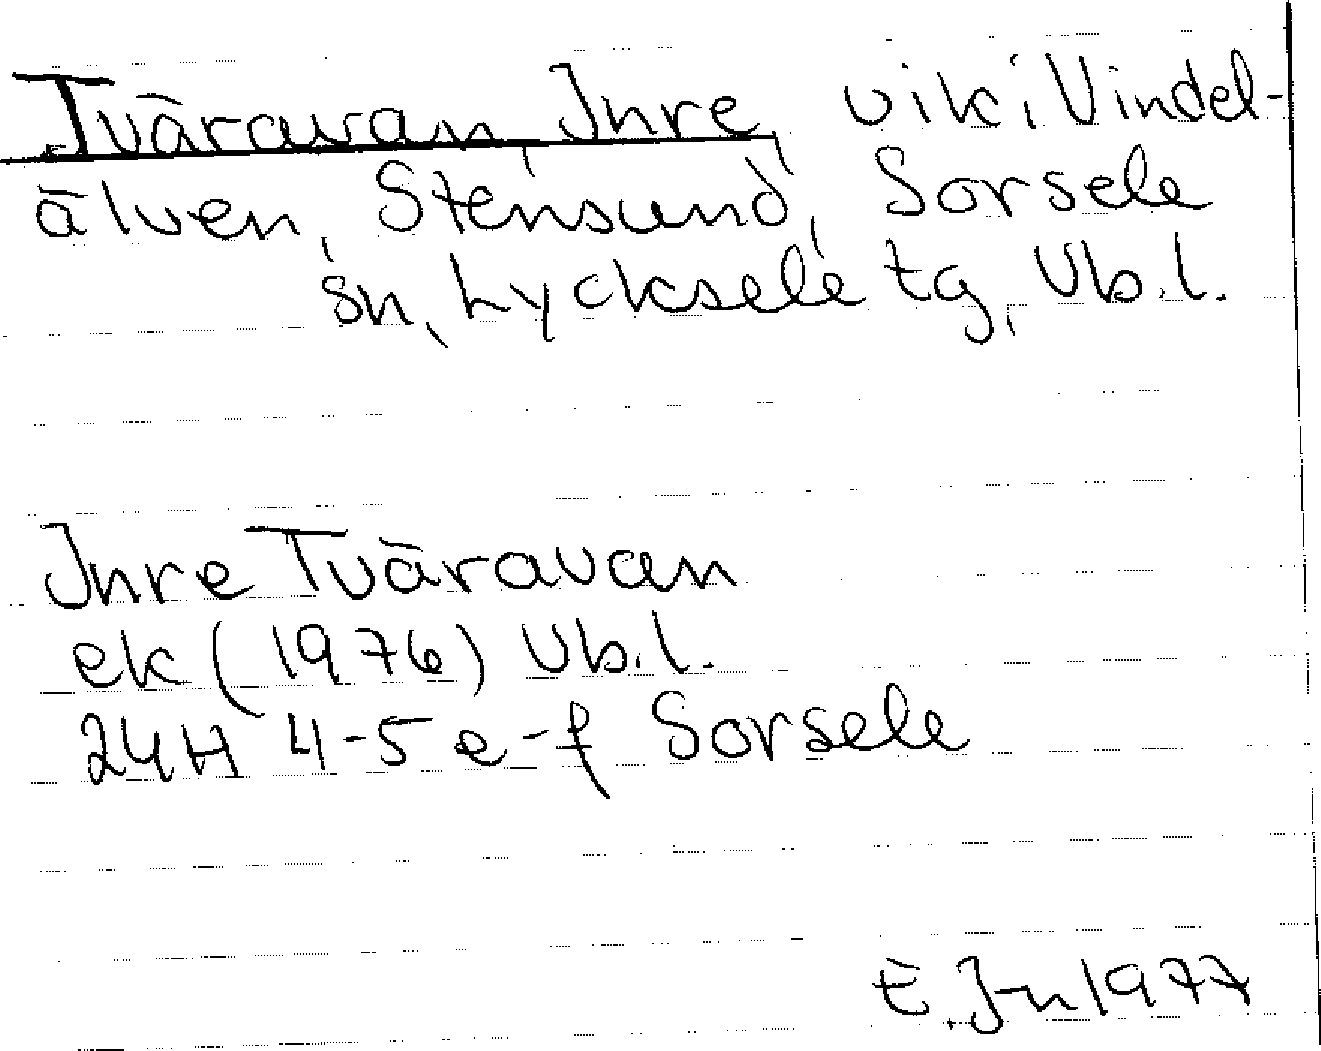 Tväravan, Inre, vik i Vindel-
älven, Stensund, Sorsele
sn, Lycksele tg, Vb.l.
Inre Tväravan
ek (1976) Vb.l.
24H 4-5 e-f Sorsele
E. J-n 1977